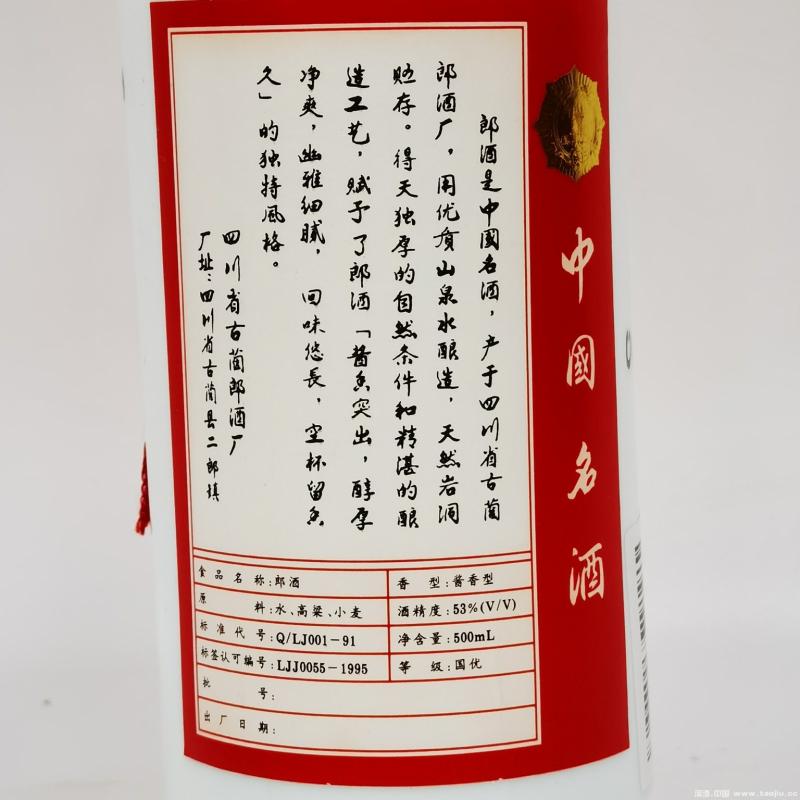 郎酒是中國名酒，产于四川省古蔺
郎酒厂，用优质山泉水酿造，天然岩洞
贮存。得天独厚的自然条件和精湛的酿
造工艺，赋予了郎酒「酱香突出，醇厚
净爽，幽雅细腻，回味悠長，空杯留香
久」的独特风格。
四川省古蔺郎酒厂
厂址：四川省古蔺县二郎镇
中國名酒
食品名称：郎酒
香型：酱香型
原料：水、高粱、小麦
酒精度：53%(V/V)
标准代号：Q/LJ001-91
净含量：500mL
标签认可编号：LJJ0055-1995
等级：国优
批号：
出厂日期：
www.taojiu.cc